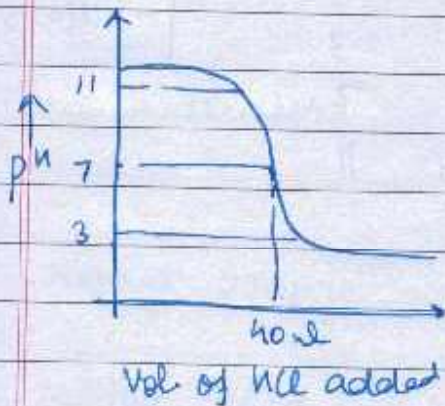 11
pH
7
3
40ml
Vol. of HCl added